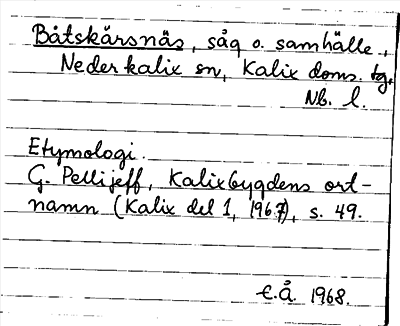 Båtskärsnäs, såg o. samhälle.,
Nederkalix sn, Kalix doms. tg,
Nb. l.
Etymologi.
G. Pellijeff, Kalixbygdens ort-
namn (Kalix del 1, 1967), s. 49.
E.Å. 1968.